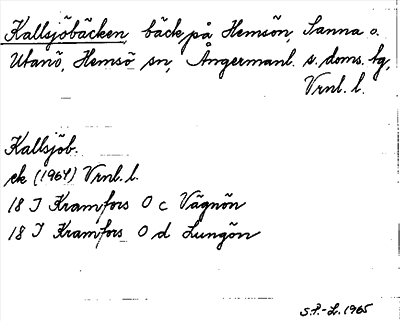 Kallsjöbäcken, bäck på Hemsön, Sanna o.
Utanö, Hemsö sn, Ångermanl. s. doms. tg,
Vrnl. l.
Kallsjöb.
ek (1964) Vrnl. l.
18 J Kramfors O c Vägnön
18 J Kramfors O d Lungön
S.P.-L. 1965